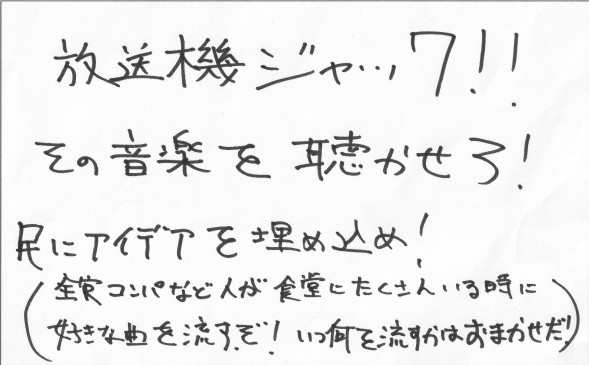 放送機ジャック!!
その音楽を聴かせろ!
民にアイデアを埋め込め!
(全寮コンパなど人が食堂にたくさんいる時に
好きな曲を流すぞ! いつ何を流すかはおまかせだ!)